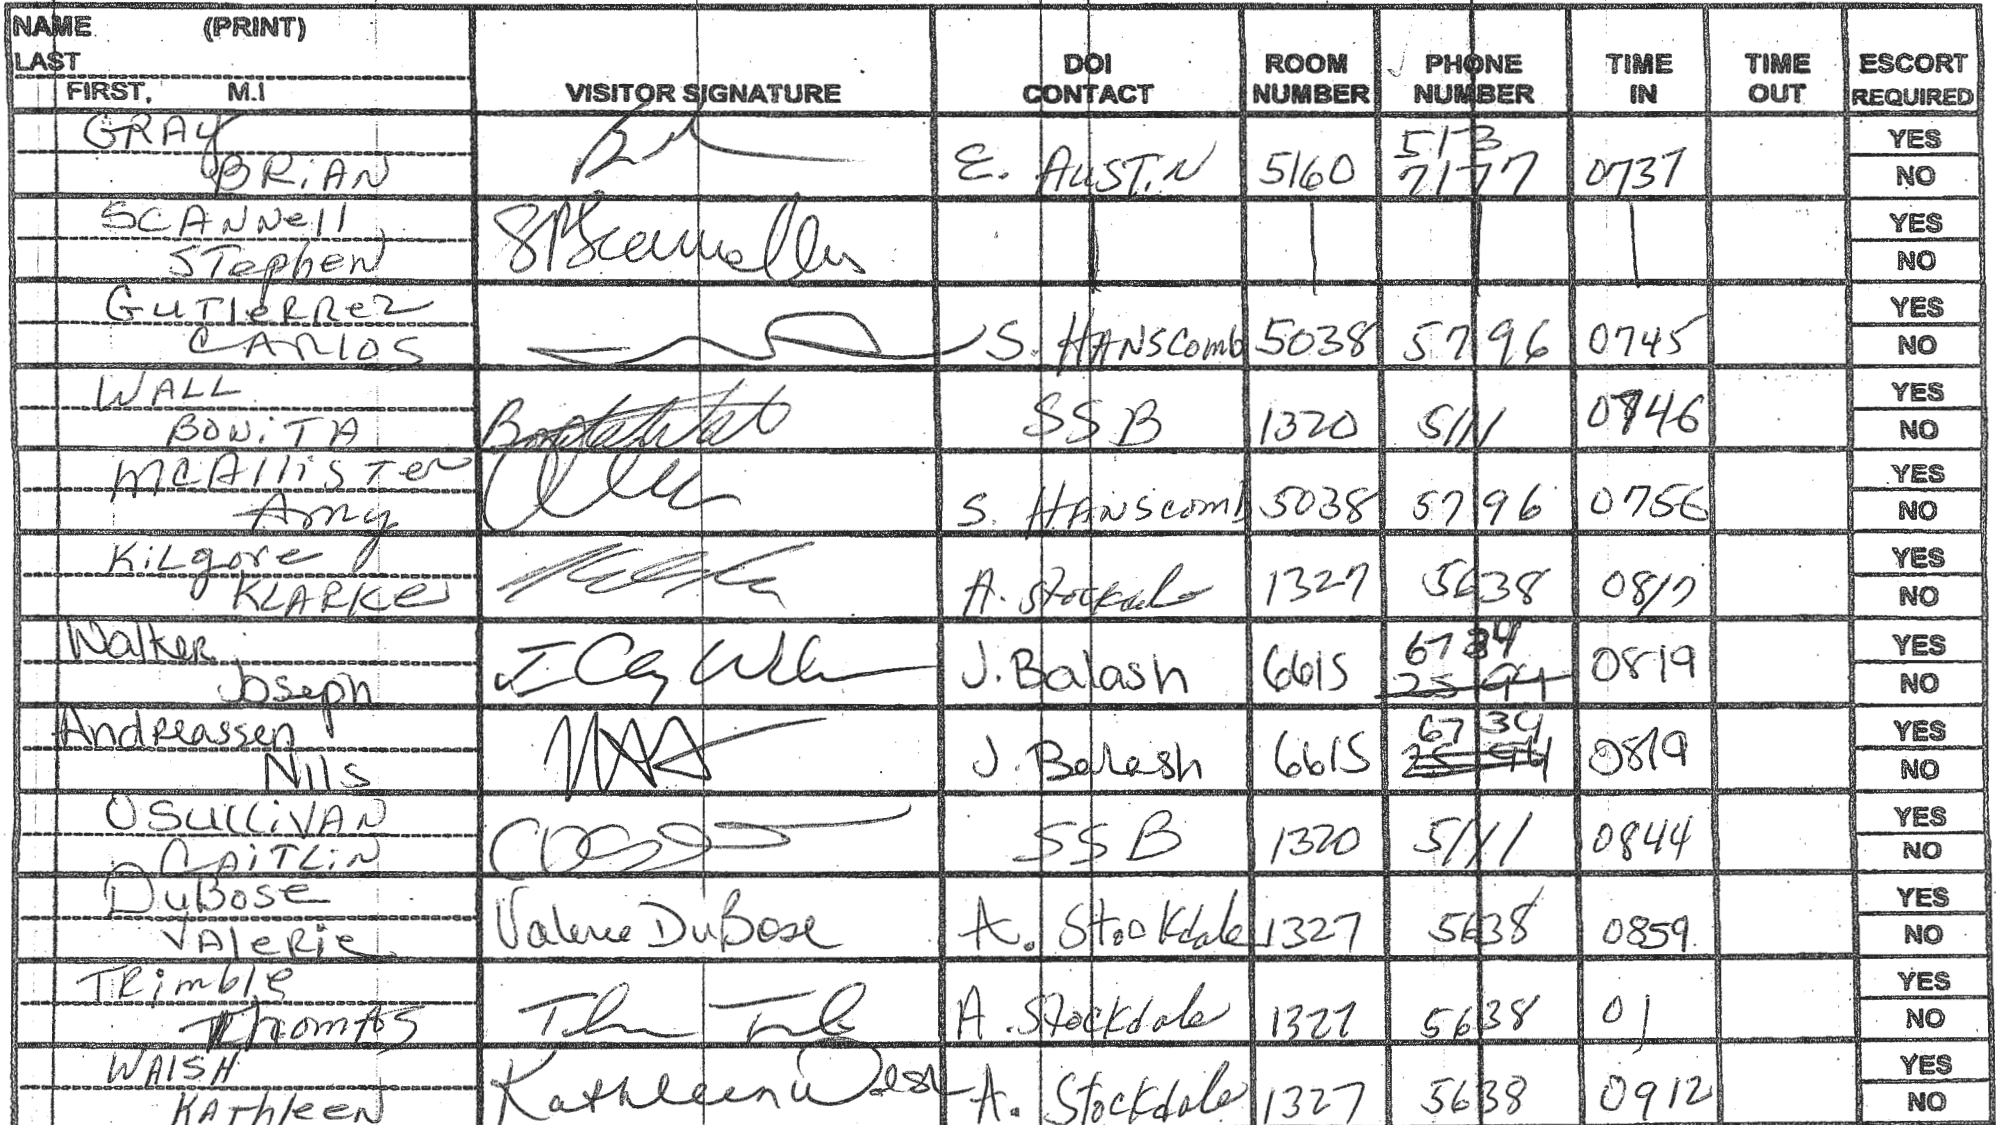 NAME (PRINT)
LAST
FIRST, M.I
VISITOR SIGNATURE
DOI CONTACT
ROOM NUMBER
PHONE NUMBER
TIME IN
TIME OUT
ESCORT REQUIRED
GRAY 513 YES
BRIAN E. AUSTIN 5160 7177 0737 NO
SCANNell YES
STephen NO
GUTIERREZ YES
CARLOS S. HANSComb 5038 5796 0745 NO
WALL YES
BONiTA SSB 1320 5111 0746 NO
MCAlliSTER YES
Amy S. HANScomb 5038 5796 0756 NO
KiLgore YES
KLARKE A. Stockdale 1327 5638 0817 NO
Walker 6734 YES
Joseph J. Balash 6615 2594 0819 NO
Andreassen 6734 YES
Nils J. Balash 6615 2594 0819 NO
OSULLiVAN YES
CAiTLiN SSB 1320 5111 0844 NO
DuBose YES
VAlerie Valerie DuBose A. Stockdale 1327 5638 0859 NO
TRimble YES
ThomAS A. Stockdale 1327 5638 NO
WAlSH YES
KAthleen Kathleen Walsh A. Stockdale 1327 5638 0912 NO